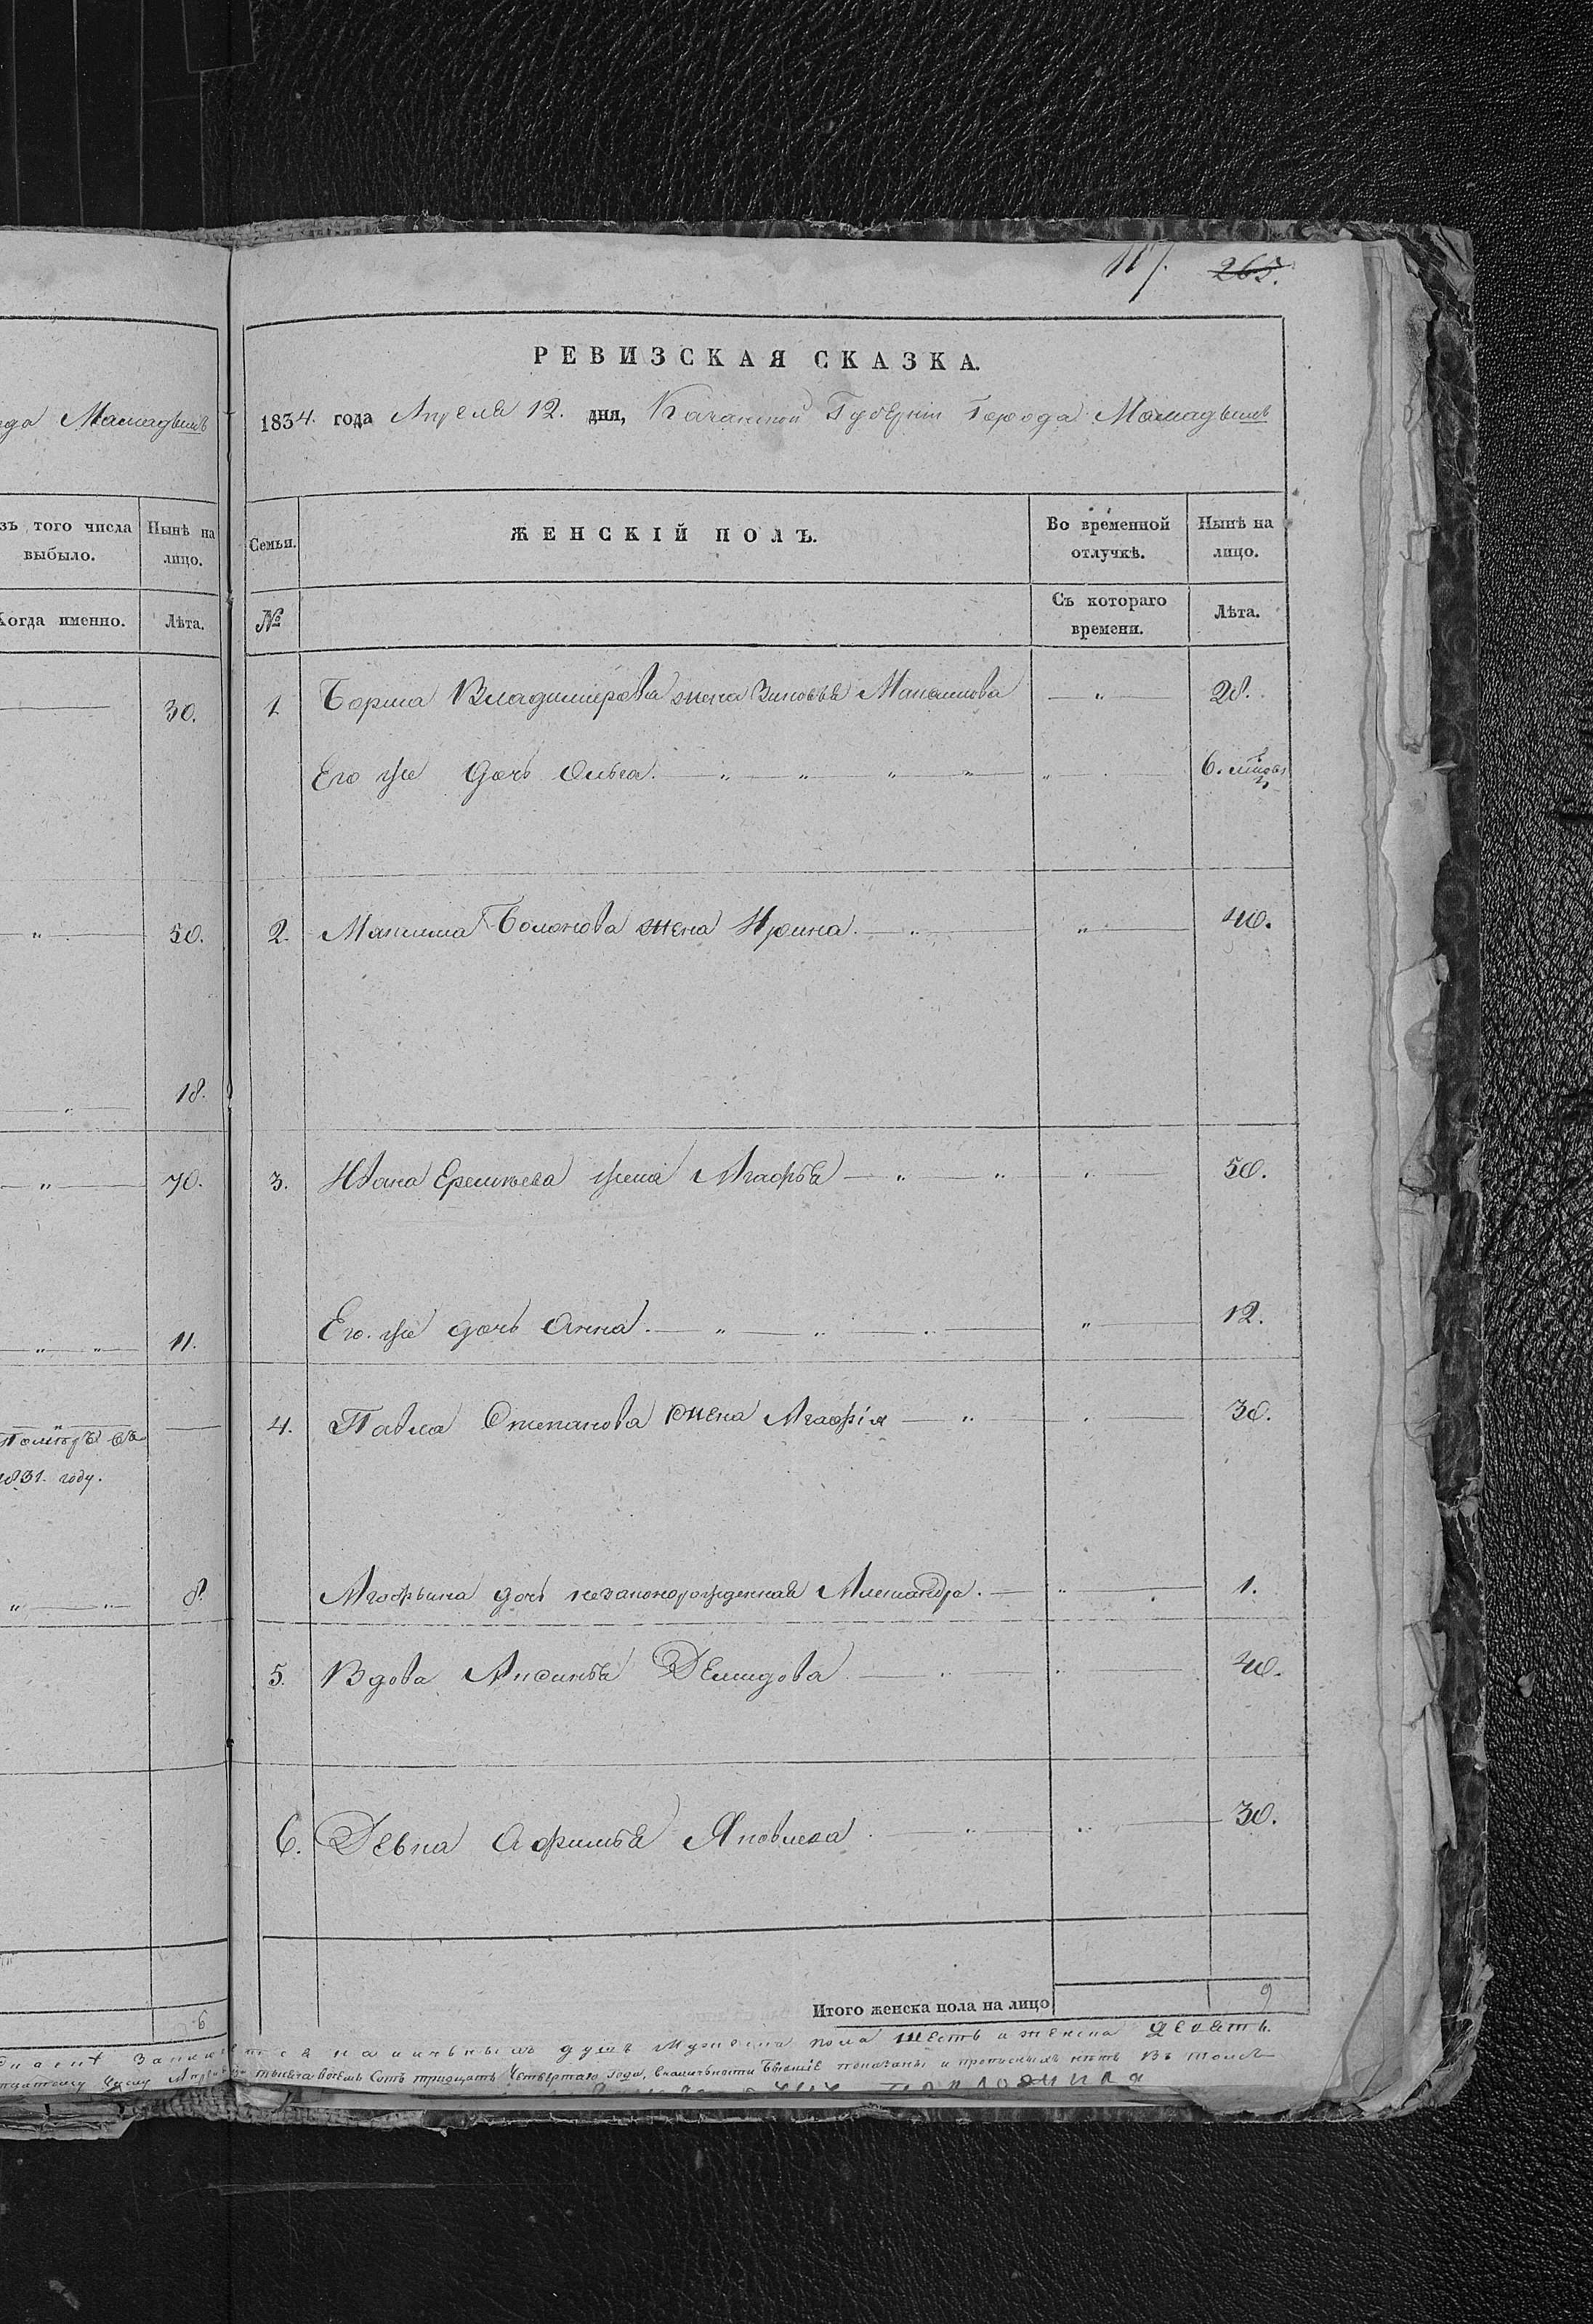 117. 265.
РЕВИЗСКАЯ СКАЗКА.
да Мамадыша
1834. года Апреля 12. дня, Казанской Губерніи Города Мамадыша
зъ того числа выбыло.
Нынѣ на лицо.
Когда именно.
Лѣта.
Семьи.
ЖЕНСКІЙ ПОЛЪ.
Во временной отлучкѣ.
Нынѣ на лицо.
№
Съ котораго времени.
Лѣта.
30.
1. Бориса Владимирова жена Зиновья Макси­мова 28.
Его же дочь Ольга. 6.
50.
2. Максима жена Ирина. 40.
18.
70.
3. Ивана Еремѣева жена Агафья 50.
11.
Его же дочь Анна. 12.
Помѣръ въ
1831. году.
4. Павла Степанова жена Агафія 30.
8.
Агафьина дочь незаконорожденная Александра. 1.
5. Вдова Аксинья Демидова 40.
6. Девка Афимья Яковлева 30.
6
Итого женска пола на лицо 9
наличныхъ душъ мужеска пола шесть и женска девять.
тысяча восемь сотъ тридцать четвертаго года, показаны и прописныхъ нѣтъ въ томъ